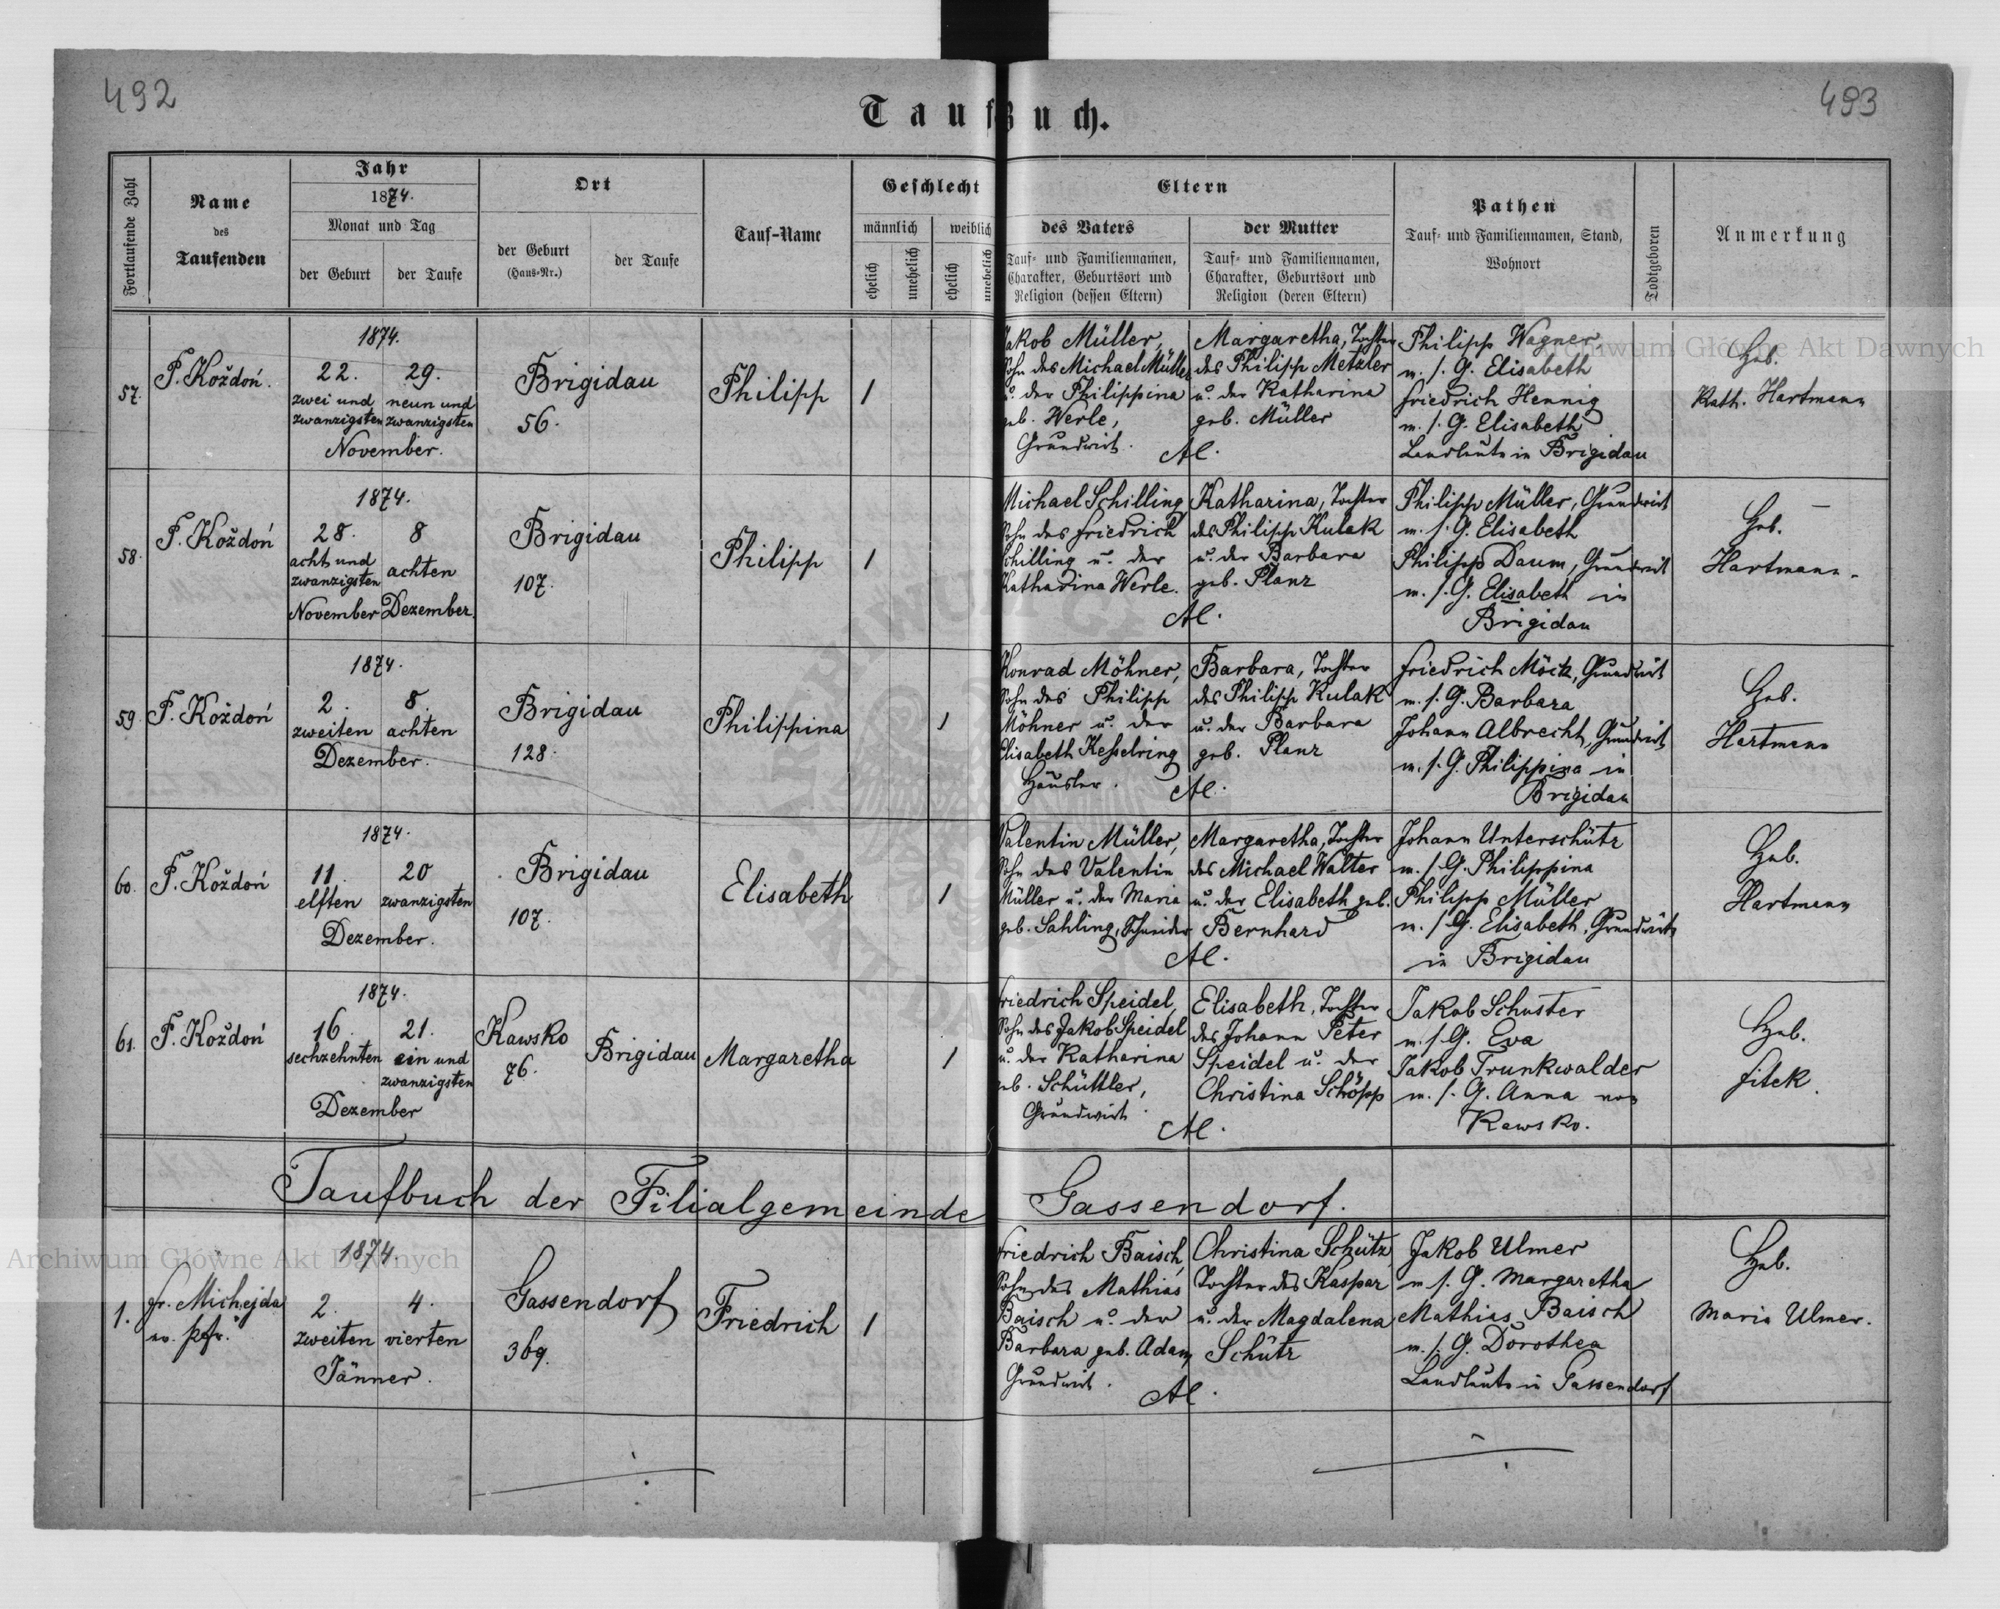 492
493
Taufbuch.
Fortlaufende Zahl
Name
des
Taufenden
Jahr
1874.
Monat und Tag
der Geburt
der Taufe
Ort
der Geburt
(Haus-Nr.)
der Taufe
Tauf-Name
Geschlecht
männlich
weiblich
ehelich
unehelich
ehelich
unehelich
Eltern
des Vaters
Tauf- und Familiennamen,
Charakter, Geburtsort und
Religion (dessen Eltern)
der Mutter
Tauf- und Familiennamen,
Charakter, Geburtsort und
Religion (deren Eltern)
Pathen
Tauf- und Familiennamen, Stand,
Wohnort
Todtgeboren
Anmerkung
57.
F. Koždoń.
1874.
22.
zwei und
zwanzigsten
29.
neun und
zwanzigsten
November.
Brigidau
56.
Philipp
1
Jakob Müller,
Sohn des Michael Müller
u. der Philippina
geb. Werle,
Grundwirt.
Margaretha, Tochter
des Philipp Metzler
u. der Katharina
geb. Müller
AC.
Philipp Wagner
m. s. G. Elisabeth
Friedrich Hennig
m. s. G. Elisabeth
Landleute in Brigidau
Heb.
Kath. Hartmann
58.
F. Koždoń
1874.
28.
acht und
zwanzigsten
November
8
achten
Dezember.
Brigidau
107.
Philipp
1
Michael Schilling
Sohn des Friedrich
Schilling u. der
Katharina Werle.
Katharina, Tochter
des Philipp Kulak
u. der Barbara
geb. Planz
AC.
Philipp Müller, Grundwirt
m. s. G. Elisabeth
Philipp Daum, Grundwirt
m. s. G. Elisabeth in
Brigidau
Heb.
Hartmann.
59.
F. Koždoń
1874.
2.
zweiten
8.
achten
Dezember.
Brigidau
128.
Philippina
1
Konrad Möhner,
Sohn des Philipp
Möhner u. der
Elisabeth Kesselring
Häusler.
Barbara, Tochter
des Philipp Kulak
u. der Barbara
geb. Planz
AC.
Friedrich Möck, Grundwirt
m. s. G. Barbara
Johann Albrecht, Grundwirt
m. s. G. Philippina in
Brigidau
Heb.
Hartmann
60.
F. Koždoń
1874.
11.
elften
20
zwanzigsten
Dezember.
Brigidau
107.
Elisabeth
1
Valentin Müller,
Sohn des Valentin
Müller u. der Maria
geb. Sahling, Schneider
Margaretha, Tochter
des Michael Walter
u. der Elisabeth geb.
Bernhard
AC.
Johann Unterschütz
m. s. G. Philippina
Philipp Müller
m. s. G. Elisabeth, Grundwirte
in Brigidau
Heb.
Hartmann
61.
F. Koždoń
1874.
16.
sechzehnten
21.
ein und
zwanzigsten
Dezember
Kawsko
76.
Brigidau
Margaretha
1
Friedrich Speidel,
Sohn des Jakob Speidel
u. der Katharina
geb. Schüttler,
Grundwirt.
Elisabeth, Tochter
des Johann Peter
Speidel u. der
Christina Schöpp
AC.
Jakob Schuster
m. s. G. Eva
Jakob Trunkwalder
m. s. G. Anna von
Kawsko.
Heb.
Fitek
Taufbuch der Filialgemeinde Gassendorf.
1.
Fr. Michejda
ev. Pfr.
1874
2.
zweiten
4.
vierten
Jänner.
Gassendorf
369.
Friedrich
1
Friedrich Baisch,
Sohn des Mathias
Baisch u. der
Barbara geb. Adam
Grundwirt.
Christina Schütz
Tochter des Kaspar
u. der Magdalena
Schütz
AC.
Jakob Ulmer
m. s. G. Margaretha
Mathias Baisch
m. s. G. Dorothea
Landleute in Gassendorf
Heb.
Maria Ulmer.
Archiwum Główne Akt Dawnych
Archiwum Główne Akt Dawnych